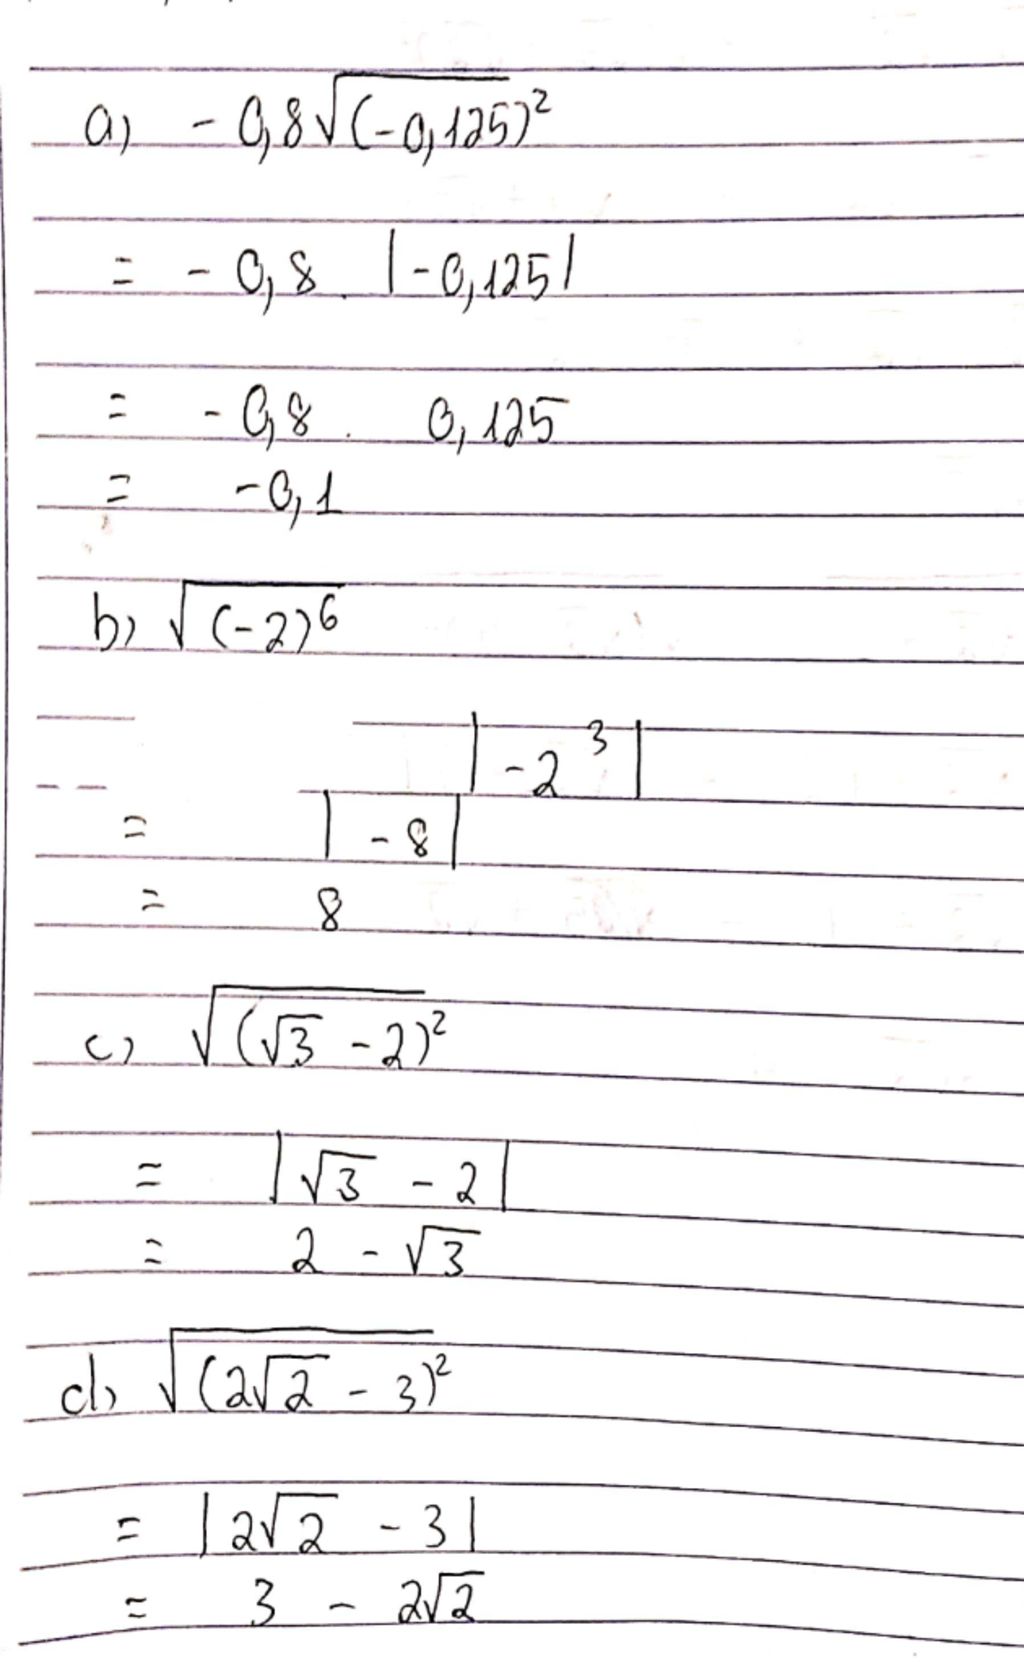 a) -0,8√(-0,125)²
= -0,8 . |-0,125|
= -0,8 . 0,125
= -0,1
b) √(-2)⁶
|-2³|
= |-8|
= 8
c) √(√3 - 2)²
= |√3 - 2|
= 2 - √3
d) √(2√2 - 3)²
= |2√2 - 3|
= 3 - 2√2